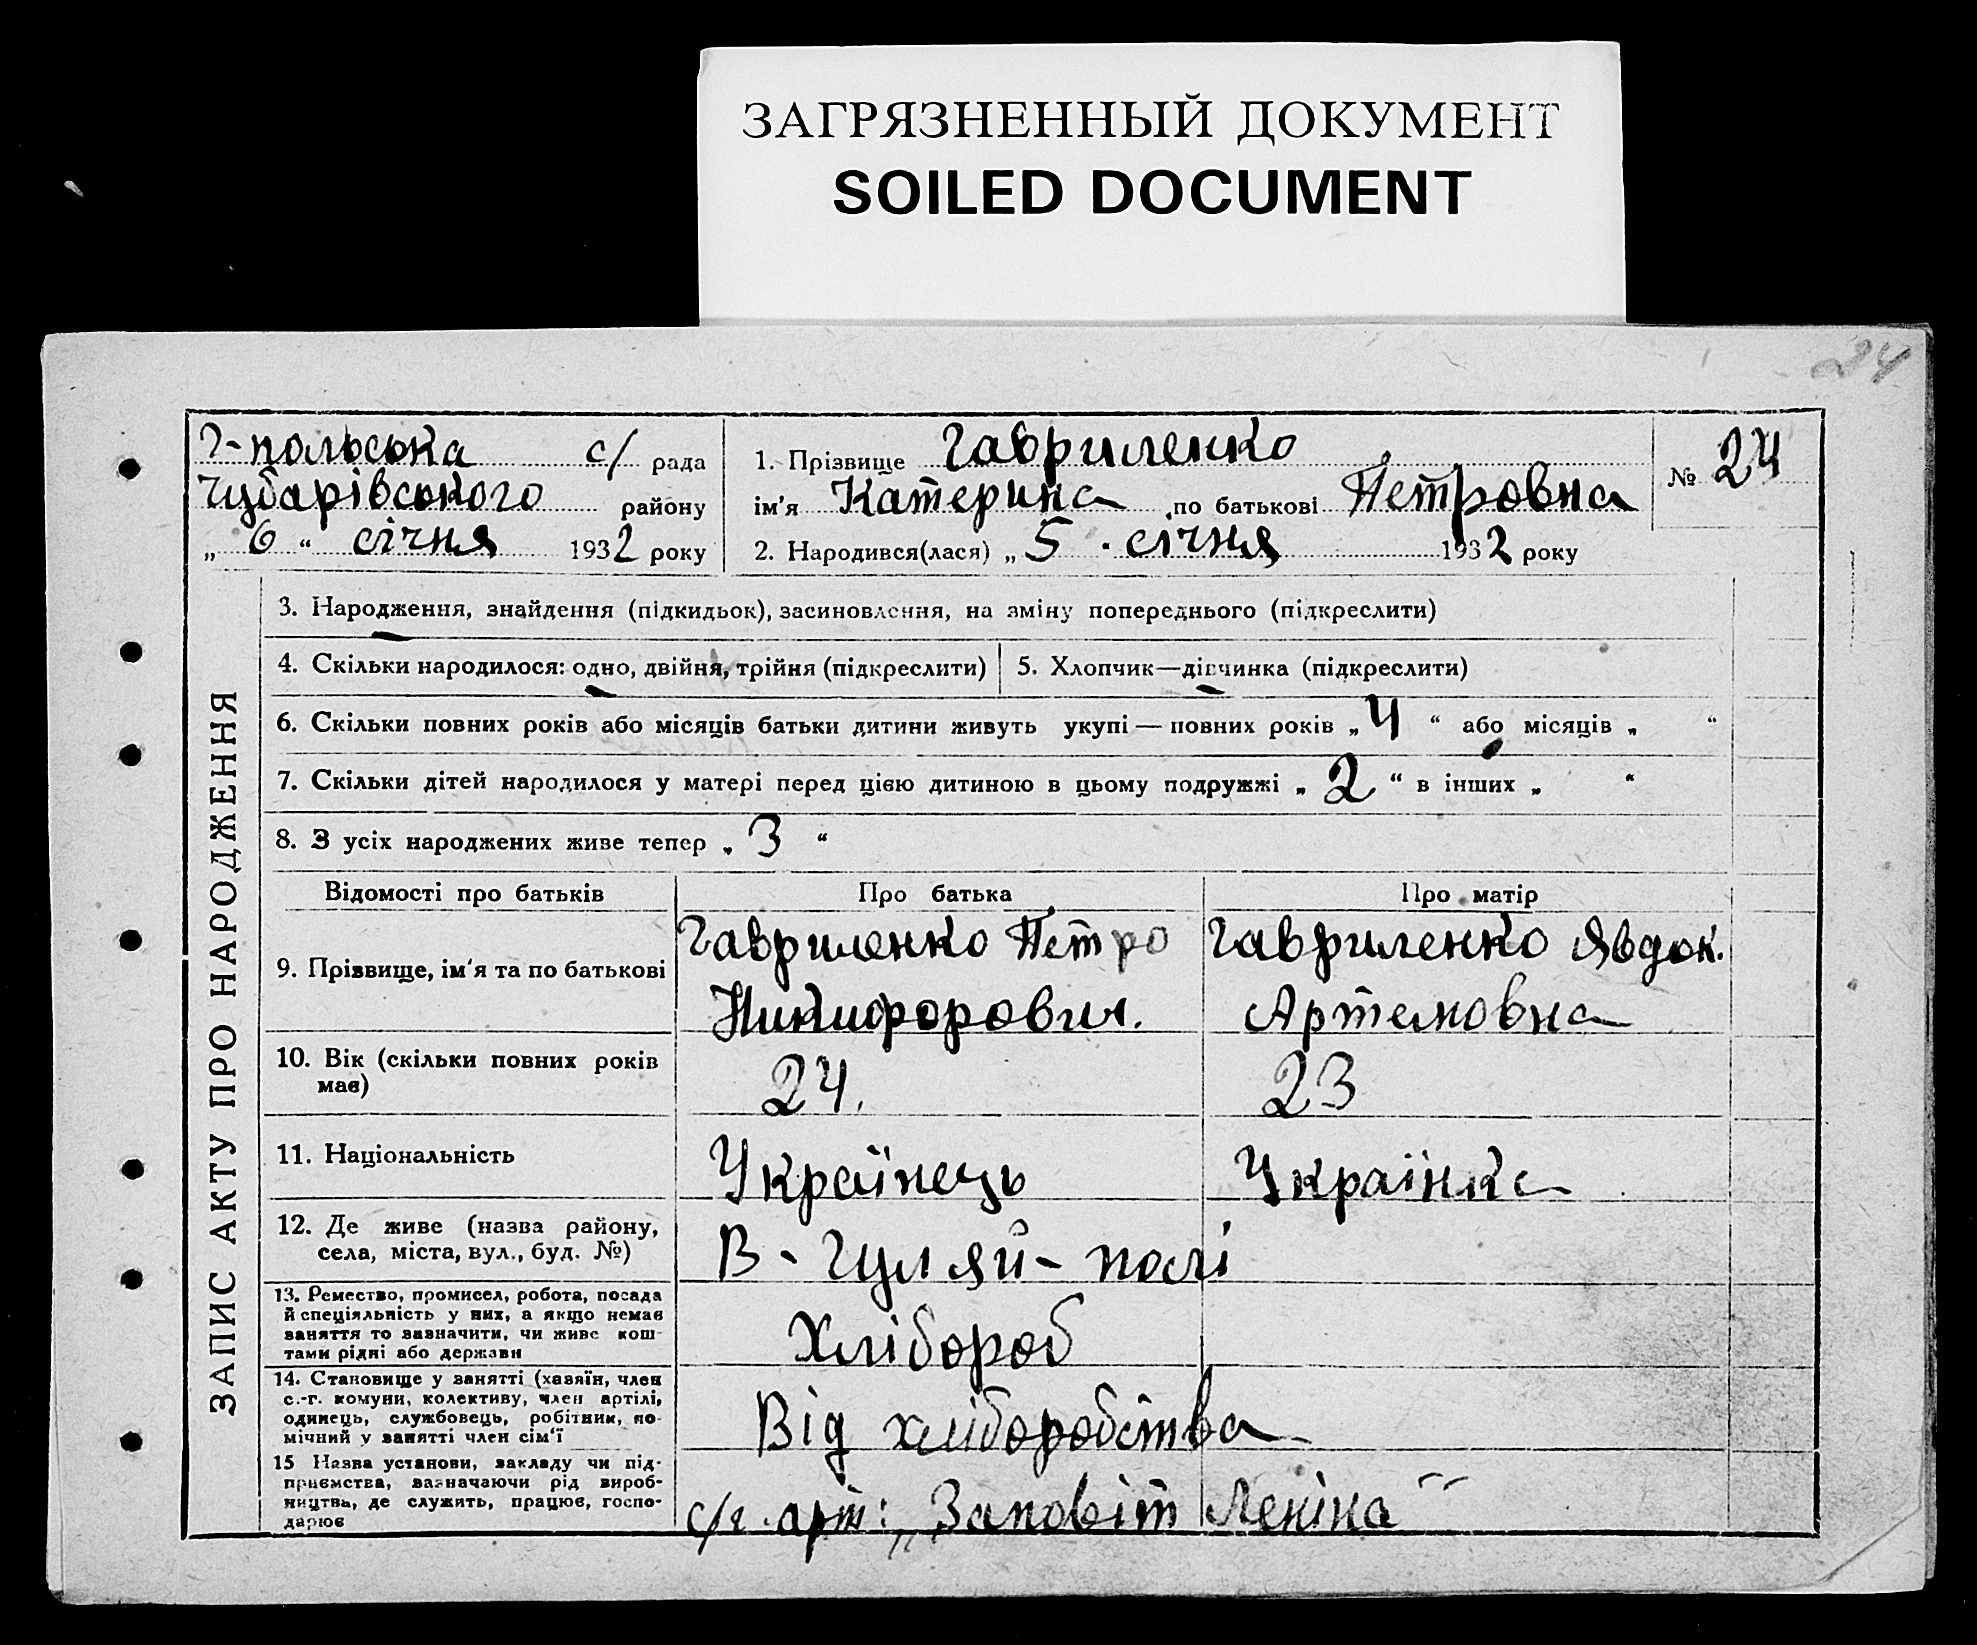 ЗАГРЯЗНЕННЫЙ ДОКУМЕНТ
SOILED DOCUMENT
24
Г-польська с/ рада
Чубарівського району
„ 6 “ січня 1932 року
1. Прізвище Гавриленко
ім'я Катерина по батькові Петровна
2. Народився(лася) „ 5 . січня 1932 року
№ 24
ЗАПИС АКТУ ПРО НАРОДЖЕННЯ
3. Народження, знайдення (підкидьок), засиновлення, на зміну попереднього (підкреслити)
4. Скільки народилося: одно, двійня, трійня (підкреслити)
5. Хлопчик—дівчинка (підкреслити)
6. Скільки повних років або місяців батьки дитини живуть укупі — повних років „ 4 “ або місяців „ “
7. Скільки дітей народилося у матері перед цією дитиною в цьому подружжі „ 2 “ в інших „ “
8. З усіх народжених живе тепер „ 3 “
Відомості про батьків Про батька Про матір
9. Прізвище, ім'я та по батькові
Гавриленко Петро
Никифорович.
Гавриленко Явдок.
Артемовна
10. Вік (скільки повних років
має)
24.
23
11. Національність
Українець
Українка
12. Де живе (назва району,
села, міста, вул., буд. №)
В - Гуляй - полі
13. Ремество, промисел, робота, посада
й спеціяльність у них, а якщо немає
заняття то зазначити, чи живе кош-
тами рідні або держави
Хлібороб
14. Становище у занятті (хазяїн, член
с.-г. комуни, колективу, член артілі,
одинець, службовець, робітник, по-
мічний у занятті член сім'ї
Від хліборобства
15 Назва установи, закладу чи під-
приємства, зазначаючи рід вироб-
ництва, де служить, працює, госпо-
дарює
с/г. арт: „Заповіт Леніна“